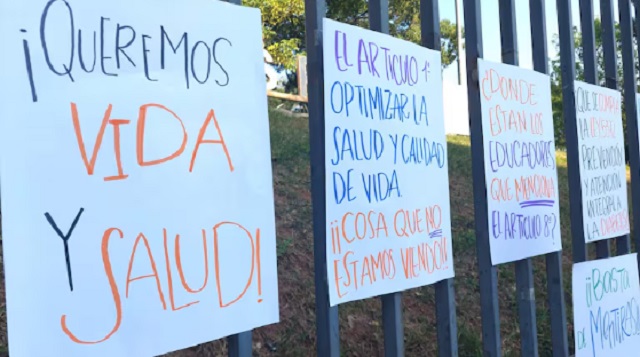 ¡QUEREMOS
VIDA
Y SALUD!
EL ARTICULO 1º
OPTIMIZAR LA
SALUD Y CALIDAD
DE VIDA
¡¡COSA QUE NO
ESTAMOS VIENDO!!
¿DONDE
ESTAN LOS
EDUCADORES
QUE MENCIONA
EL ARTICULO 8º?
QUE SE CUMPLA
LA LEY
PREVENCIÓN
Y ATENCIÓN
INTEGRAL A
LA
¡¡BASTA
DE MENTIRAS